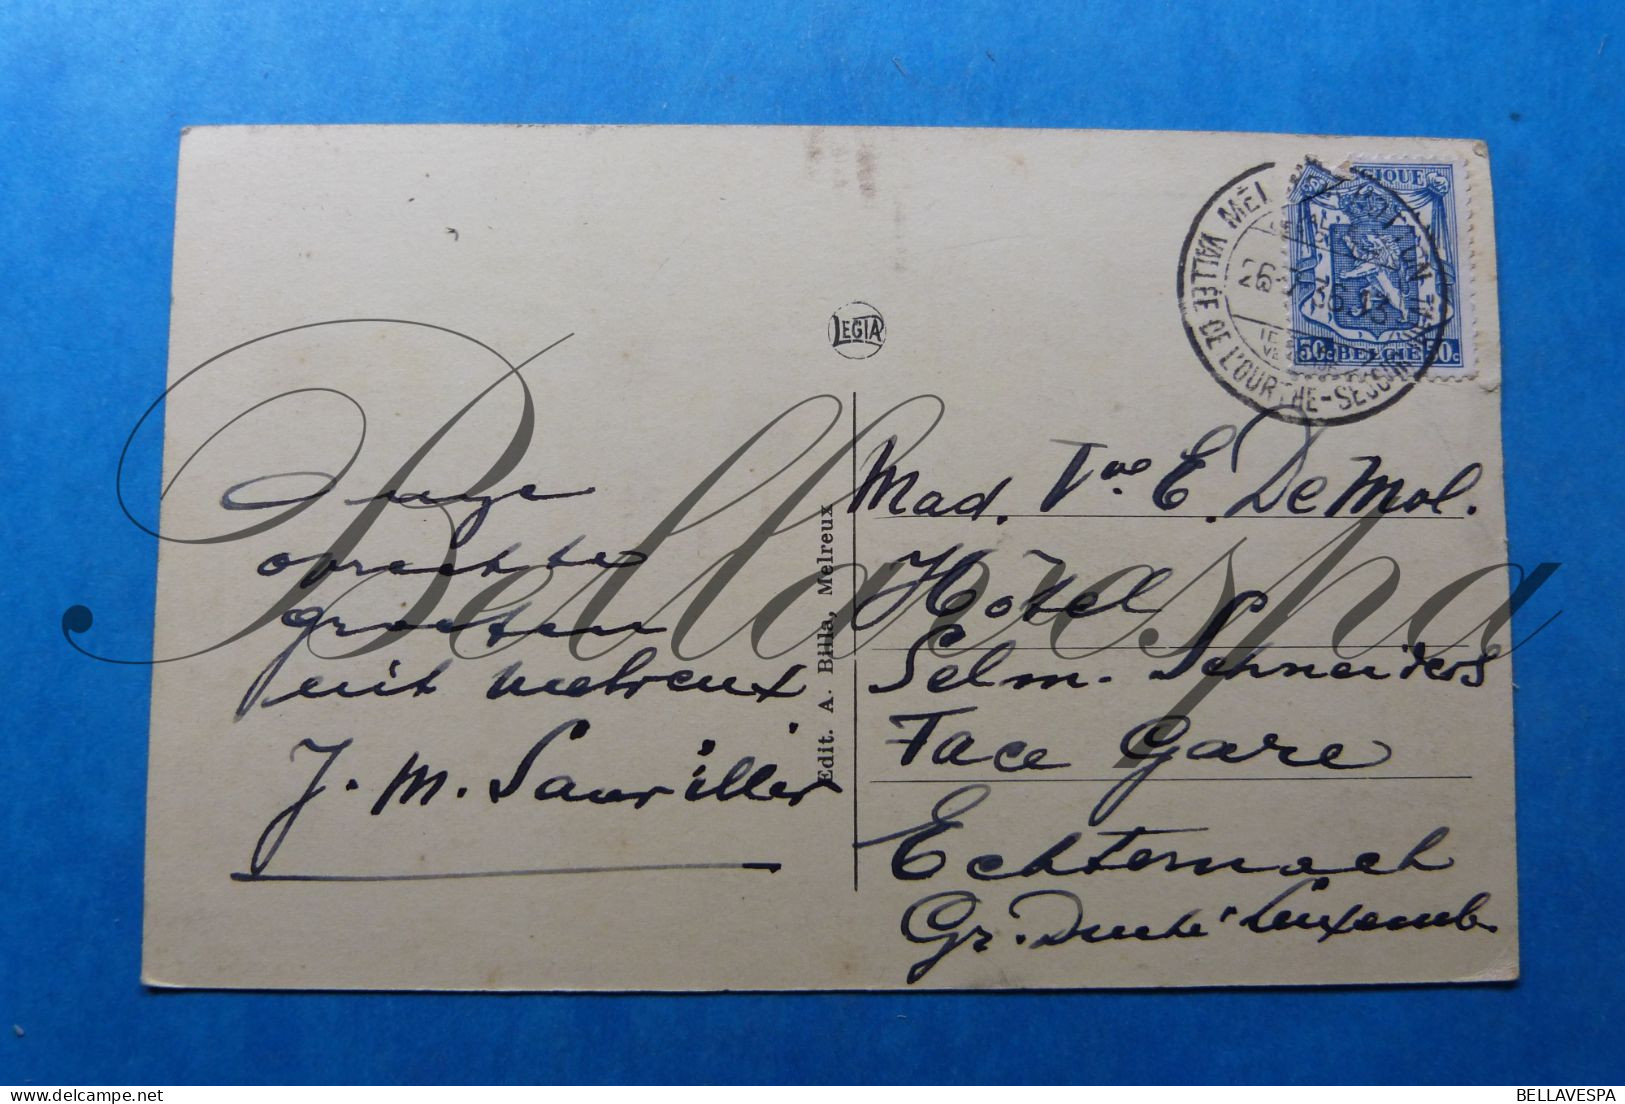 BELGIQUE
VALLÉE DE L'OURTHE-SES
26
50c BELGIE 50c
LEGIA
Edit. A. Billa, Melreux
oprechte
groeten
uit Melreux
J. M. Sauviller
Mad. Vve E. De Mol.
Hôtel
Selm. Schneiders
Face Gare
Echternach
Gr. Duché Luxemb.
Bellavespa
BELLAVESPA